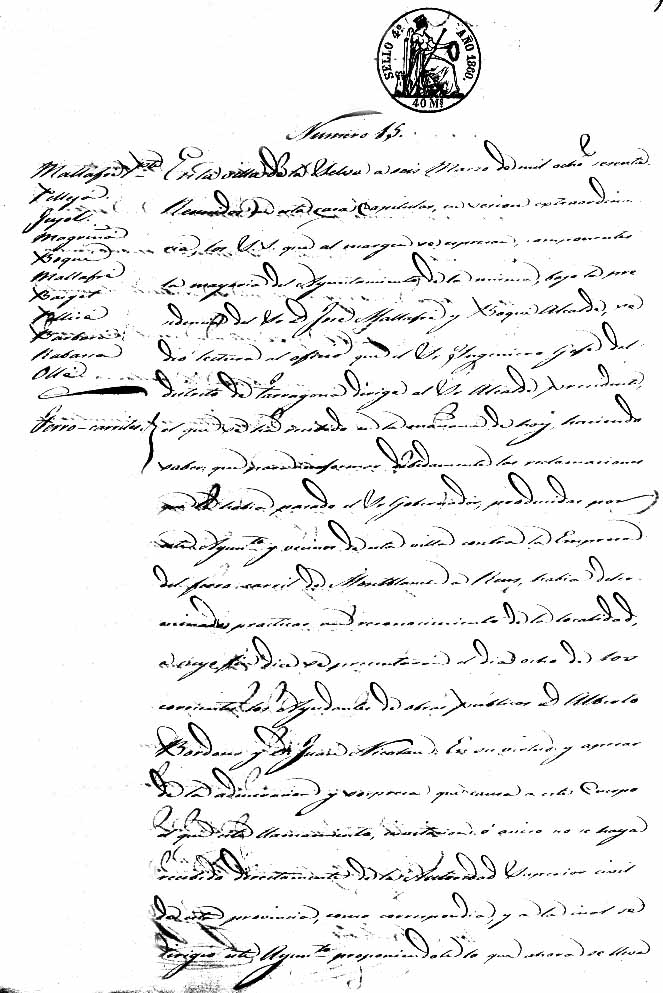 SELLO 4º AÑO 1860.
40 Mˢ
Numero 15.
Mallafré Pᵗᵉ
Pellejá
Jujol
Magriñá
Boqué
Mallafré
Barget
Pellisé
Barberá
Rabassa
Ollé
Ferro-carriles
En la villa de la Selva a seis Marzo de mil ochoˢ sesenta
Reunidos en esta casa Capitular, en sesion extraordina
ria, los S.S. que al margen se espresan, componentes
la mayoria del Ayuntamiento de la misma, bajo la pre
sidencia del Sr D. José Mallafré y Boqué Alcalde, se
dió lectura al oficio que el Sr Ingeniero Gefe del
distrito de Tarragona dirige al Sr Alcalde presidente,
el que se ha recibido en la mañana de hoy, haciendo
saber, que para informar debidamente las reclamaciones
que le habia pasado el Sr Gobernador, producidas por
este Ayunᵗᵒ y vecinos de esta villa contra la Empresa
del ferro-carril de Montblanch a Reus, habia deter
minado practicar un reconocimiento de la localidad,
a cuyo fin dice se presentarian el dia ocho de los
corrientes los Ayudantes de obras públicas D. Alberto
Bordons y D. Juan Nicolau. En su virtud y apesar
de la admiracion y sorpresa que causa a este Cuerpo
el que este llamamiento, no se haya
recibido directamente de la Autoridad Superior civil
de esta provincia, como correspondia, y a la cual se
dirigió este Ayunᵗᵒ proponiendole lo que ahora se lleva